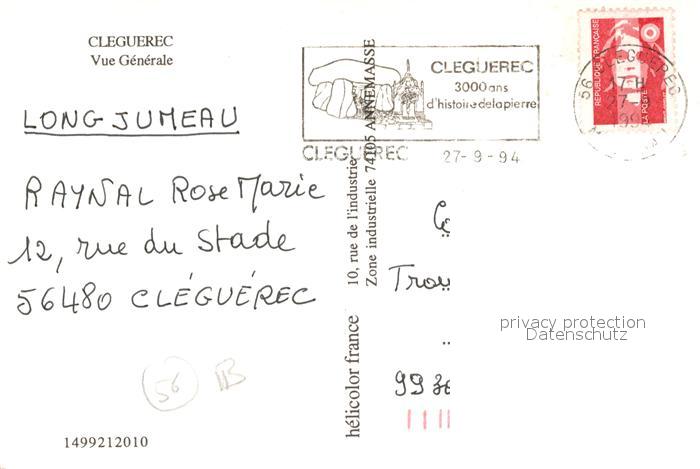 CLEGUEREC
Vue Générale
LONGJUMEAU
RAYNAL Rose Marie
12, rue du Stade
56480 CLÉGUÉREC
56
1499212010
hélicolor france
10, rue de l'industrie
Zone industrielle 74105 ANNEMASSE
CLEGUEREC
3000 ans
d'histoire de la pierre
CLEGUEREC 27-9-94
REPUBLIQUE FRANÇAISE
LA POSTE
56 CLEGUEREC
privacy protection
Datenschutz